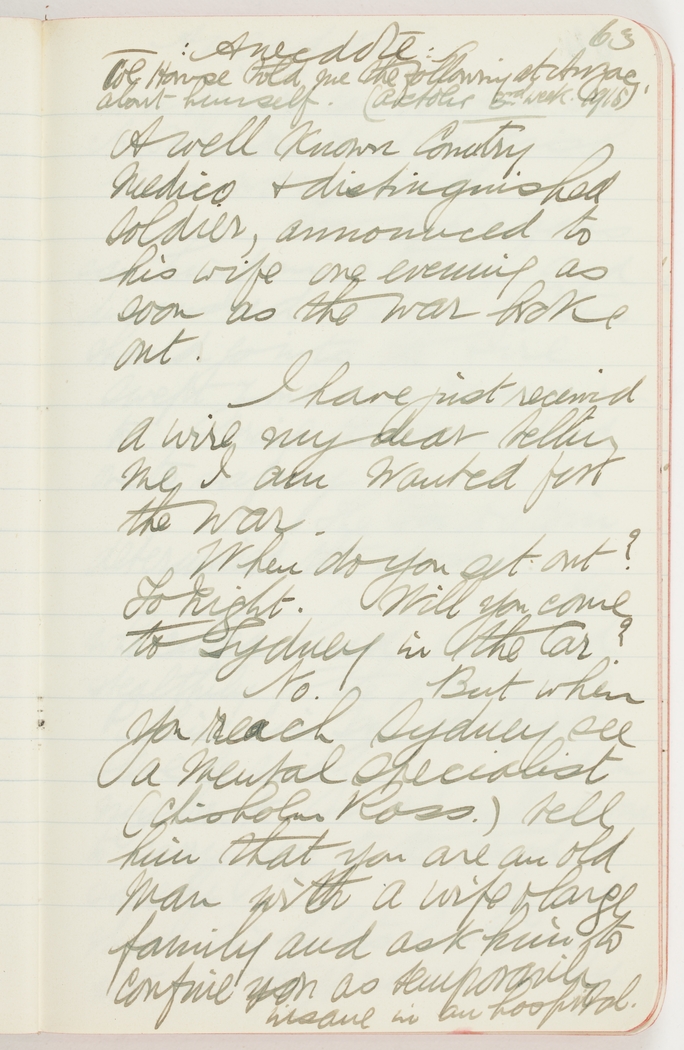 63
: Anecdote :
Col Howse told me the following at Anzac,
about himself. (October 3rd week. 1915)
A well known Country
Medico & distinguished
soldier, announced to
his wife one evening as
soon as the war broke
out.
I have just received
a wire my dear telling
me I am wanted for
the war.
When do you get out?
To night. Will you come
to Sydney in the Car?
No. But when
you reach Sydney see
a mental specialist
(Chisholm Ross.) tell
him that you are an old
man with a wife & large
family and ask him to
confine you as temporarily
insane in an hospital.